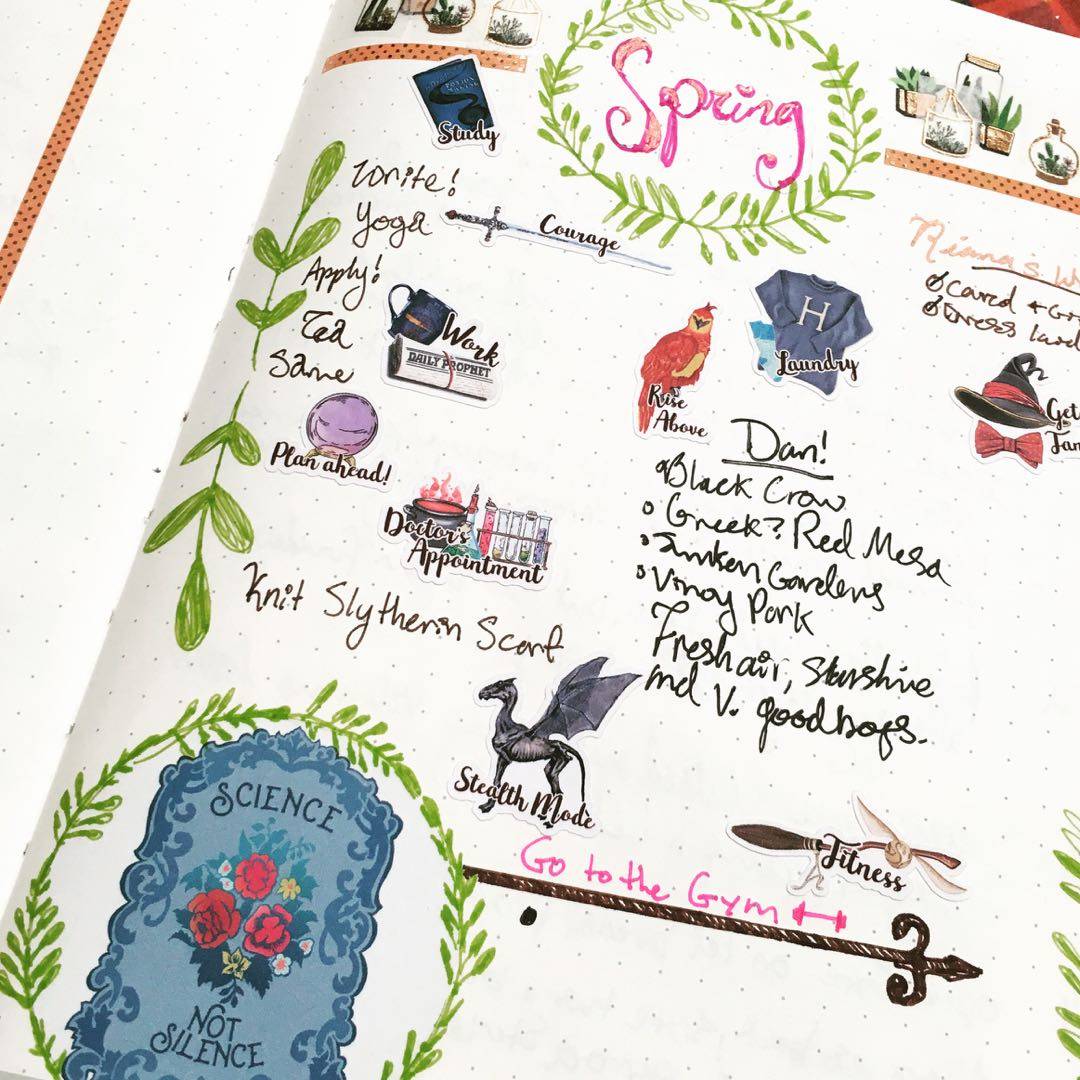 Study
Spring
Write!
Yoga
Courage
Apply!
Tea
Same
Work
DAILY PROPHET
H
Laundry
Rise
Above
Plan ahead!
Doctor's
Appointment
Knit Slytherin Scarf
Riana's W
Card + Gr
Dress
Get
Fan
Dan!
Black Crow
Greek? Red Mesa
Sunken Gardens
Vinoy Park
Fresh air, starshine
and V. good boys.
Stealth Mode
Fitness
Go to the Gym
SCIENCE
NOT
SILENCE